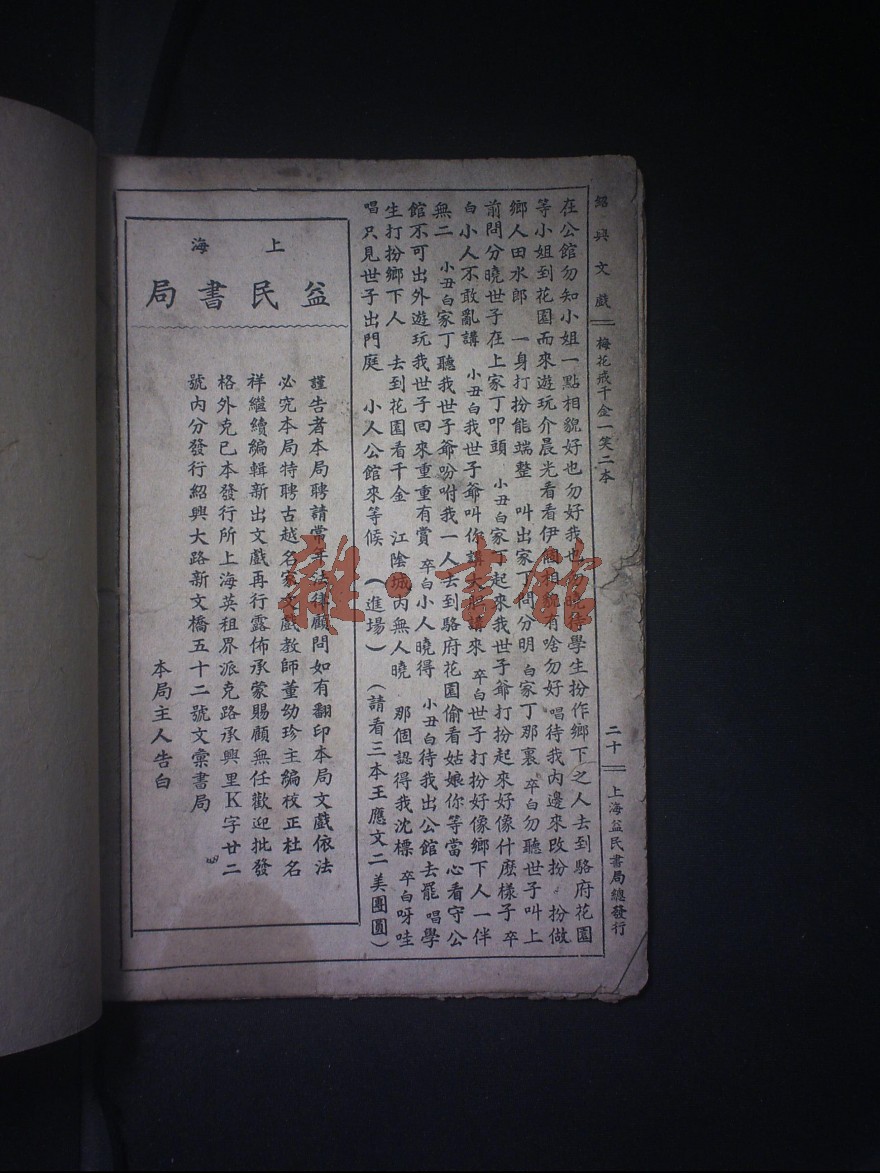 紹興文戲 梅花戒千金一笑二本 二十 上海益民書局總發行
在公館勿知小姐一點相貌好也勿好我也勿曉待學生扮作鄉下之人去到駱府花園
等小姐到花園而來遊玩介晨光看看伊個相貌有啥勿好 唱待我內邊來改扮 扮做
鄉人田水郎 一身打扮能端整 叫出家丁問分明 白家丁那裏 卒白勿聽世子叫上
前問分曉世子在上家丁叩頭 小丑白家丁起來我世子爺打扮起來好像什麽樣子 卒
白小人不敢亂講 小丑白我世子爺叫你講大胆講來 卒白世子打扮好像鄉下人一伴
無二 小丑白家丁聽我世子爺吩咐我一人去到駱府花園偷看姑娘你等當心看守公
館不可出外遊玩我世子回來重重有賞 卒白小人曉得 小丑白待我出公館去罷 唱學
生打扮鄉下人 去到花園看千金 江陰城內無人曉 那個認得我沈標 卒白呀哇
唱只見世子出門庭 小人公館來等候 (進場) (請看三本王應文二美團圓)
上海
益民書局
謹告者本局聘請常年法律顧問如有翻印本局文戲依法
必究本局特聘古越名家文戲教師董幼珍主編校正杜名
祥繼續編輯新出文戲再行露佈承蒙賜顧無任歡迎批發
格外克已本發行所上海英租界派克路承興里K字廿二
號內分發行紹興大路新文橋五十二號文彙書局
本局主人告白
雜·書館